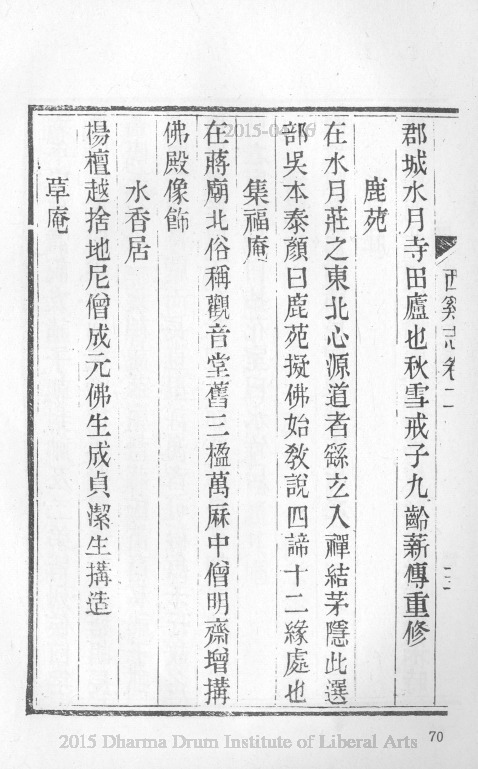 西谿志卷二
郡城水月寺田廬也秋雪戒子九齡薪傳重修
鹿苑
在水月莊之東北心源道者繇玄入禪結茅隱此選
部吳本泰顏曰鹿苑擬佛始敎說四諦十二緣處也
集福庵
在蔣廟北俗稱觀音堂舊三楹萬厤中僧明齋增搆
佛殿像飾
水香居
楊檀越捨地尼僧成元佛生成貞潔生搆造
草庵
70
2015 Dharma Drum Institute of Liberal Arts